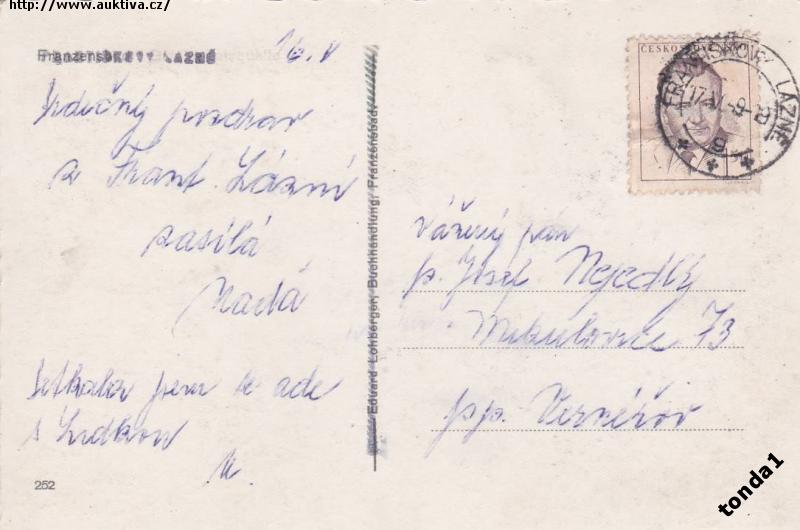 http://www.auktiva.cz/
Franzensbad
FRANTIŠKOVY LÁZNĚ
16.V
Srdečný pozdrav
z Frant. Lázní
zasílá
Naďa
Setkala jsem se zde
s Zudkou
N.
252
Eduard Lohberger, Buchhandlung, Franzensbad.
ČESKOSLOVENSKO
FRANTIŠKOVY LÁZNĚ
Vážený pán
p. Josef Nejedlý
Mikulovice 73
pp. Vernéřov
tonda1